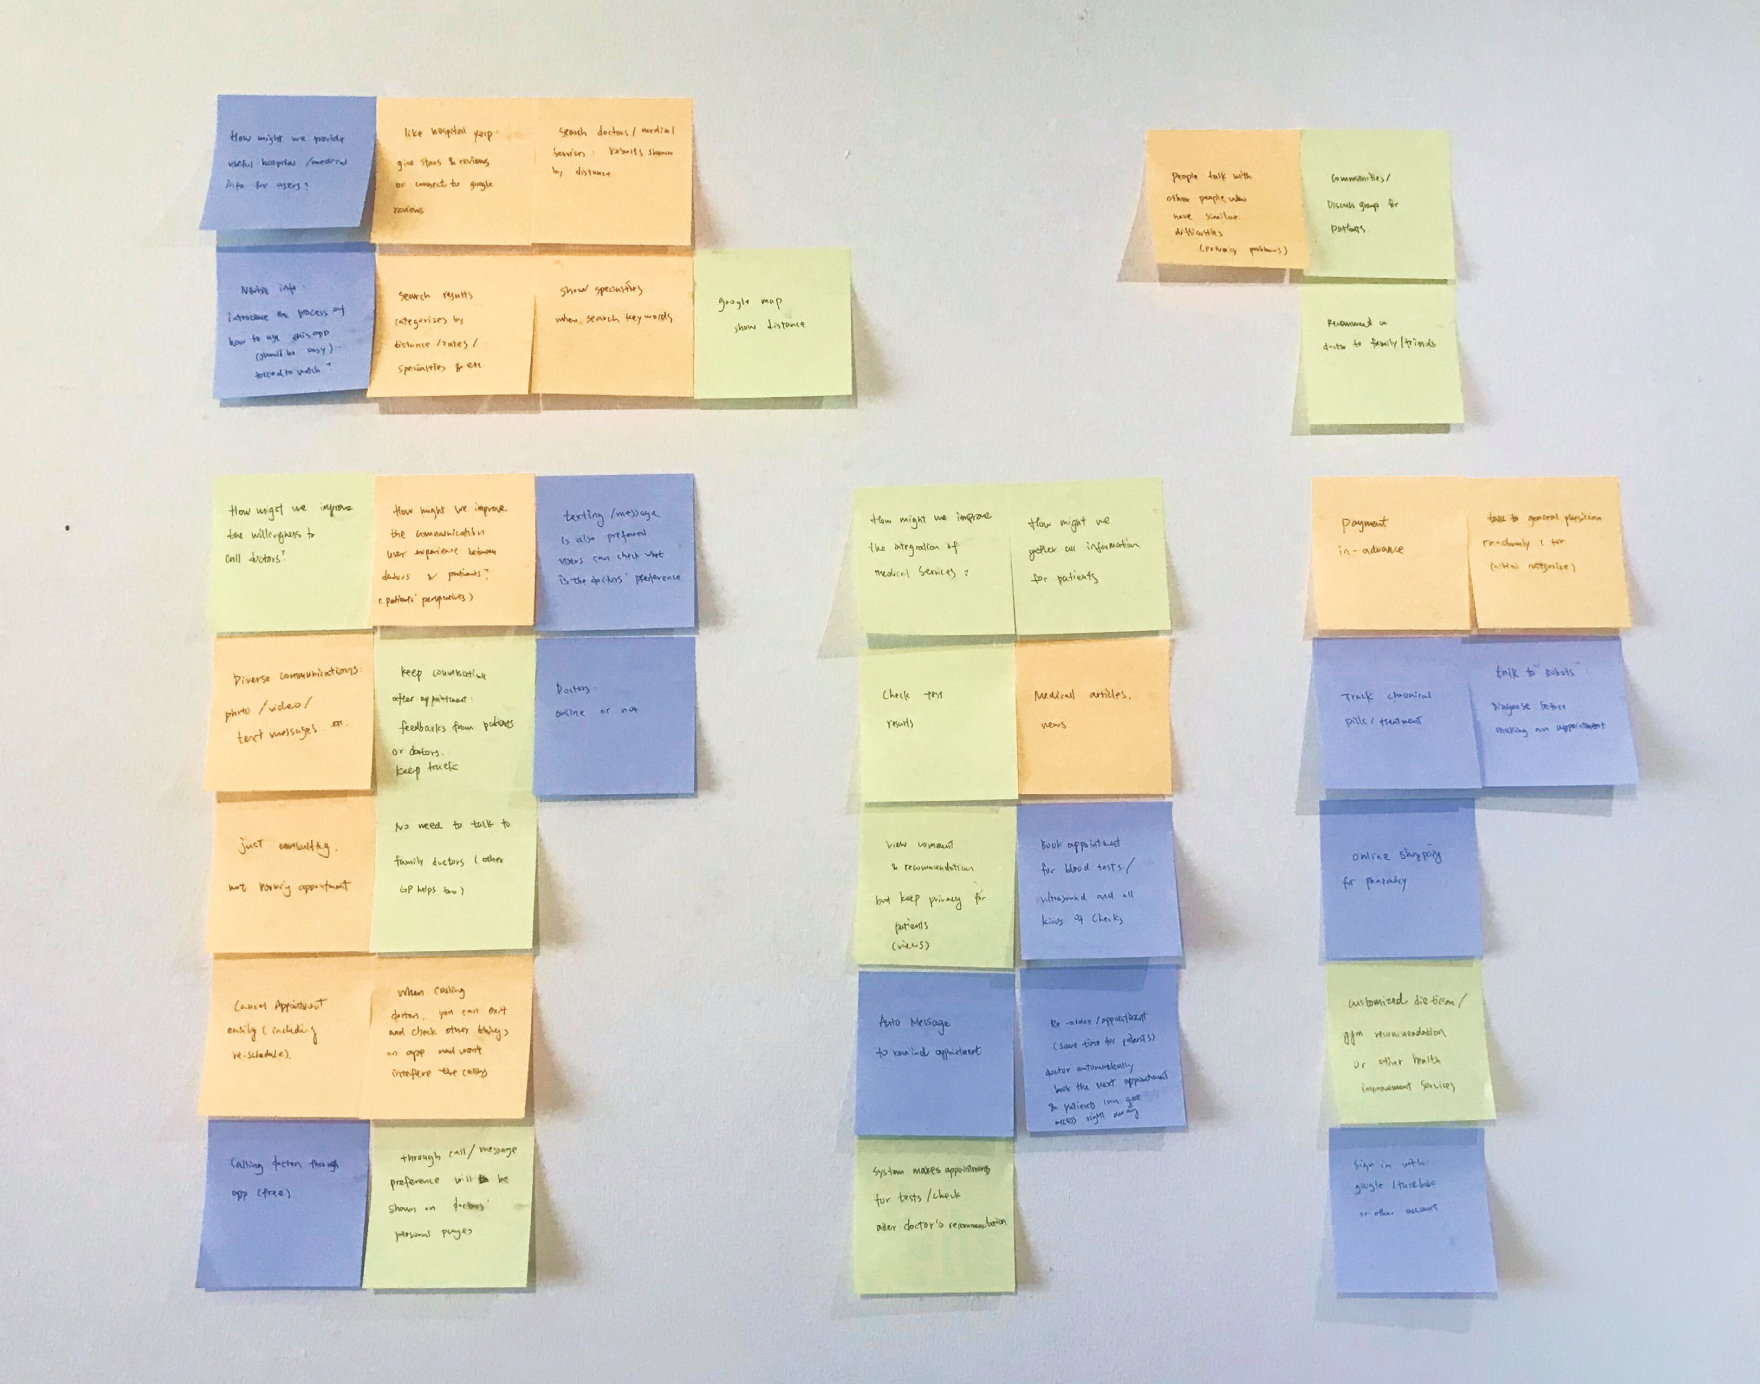 How might we provide
useful hospital /medical
info. for users?
like hospital yelp.
give stars & reviews
or connect to google
reviews
search doctors / medical
services. Results shown
by distance
info:
introduce the process of
how to use this app
(should be easy).
forced to watch?
Search results
categorizes by
distance /rates /
specialties & etc.
show specialties
when search keywords
google map
show distance
people talk with
other people who
have similar
difficulties
(privacy problems)
communities/
Discuss group for
patients
Recommend
doctor to family/friends
How might we improve
the willingness to
call doctors?
How might we improve
the communication
user experience between
doctors & patients?
(patients' perspectives)
texting /message
is also preferred
users can check what
is the doctors' preference
Diverse communications:
photo /video/
text messages.
keep conversation
after appointment:
feedbacks from patients
or doctors.
keep track
Doctors:
online or not
just consulting.
not booking appointment
No need to talk to
family doctors (other
GP helps too)
Cancel Appointment
easily (including
re-schedule)
When calling
doctors, you can exit
and check other things
on app and wont
interfere the calling
Calling doctor through
app (free)
through call/message
preference will be
shown on doctors'
personal pages
How might we improve
the integration of
medical services?
How might we
gather all information
for patients
Check test
results
Medical articles,
news
view comment
& recommendation
but keep privacy for
patients
(views)
Book appointment
for blood tests/
ultrasound and all
kinds of checks
Auto Message
to remind appointment
Re-order/appointment
(save time for patients)
doctor automatically
book the next appointment
& patients can get
access right away
system makes appointments
for tests/check
after doctor's recommendation
payment
in-advance
talk to general physician
randomly ( for
categorize)
Track
pills/ treatment
talk to "Robots":
Diagnose before
making an appointment
online shopping
for pharmacy
customized dietician/
gym recommendation
or other health
improvement services
Sign in with
google /facebook
or other account